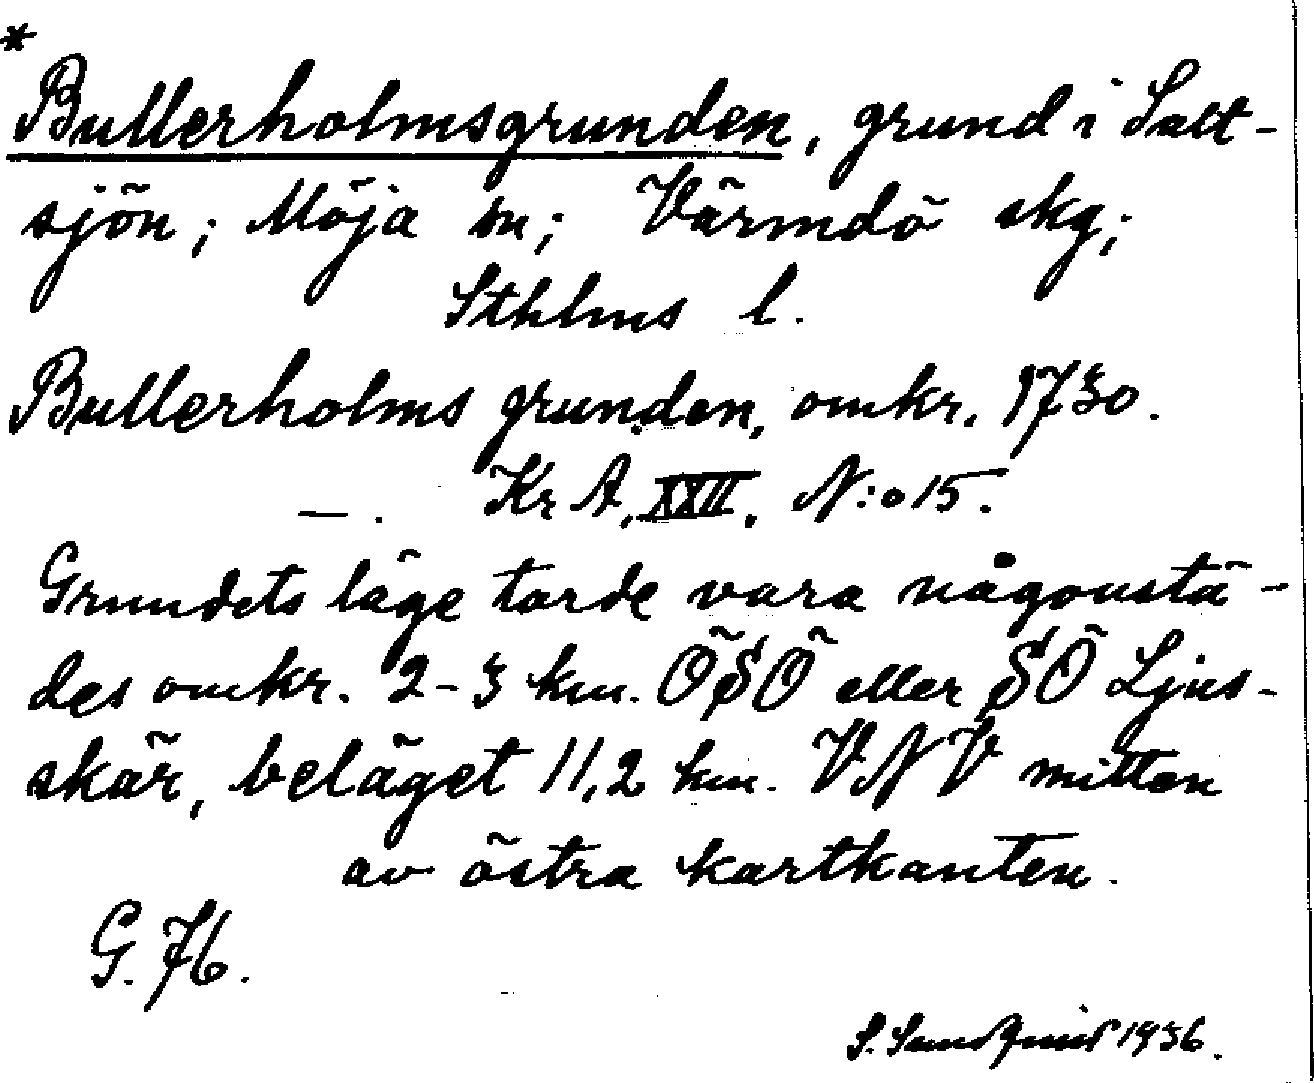 *
Bullerholmsgrunden, grund i Salt-
sjön; Möja sn; Värmdö skg;
Sthlms l.
Bullerholms grunden, omkr. 1730.
—. KrA, XXII, N:o 15.
Grundets läge torde vara någonstä-
des omkr. 2-3 km. ÖSÖ eller SÖ Ljus-
skär, beläget 11,2 km. VNV mitten
av östra kartkanten.
G. 76.
S. Sundquist 1936.